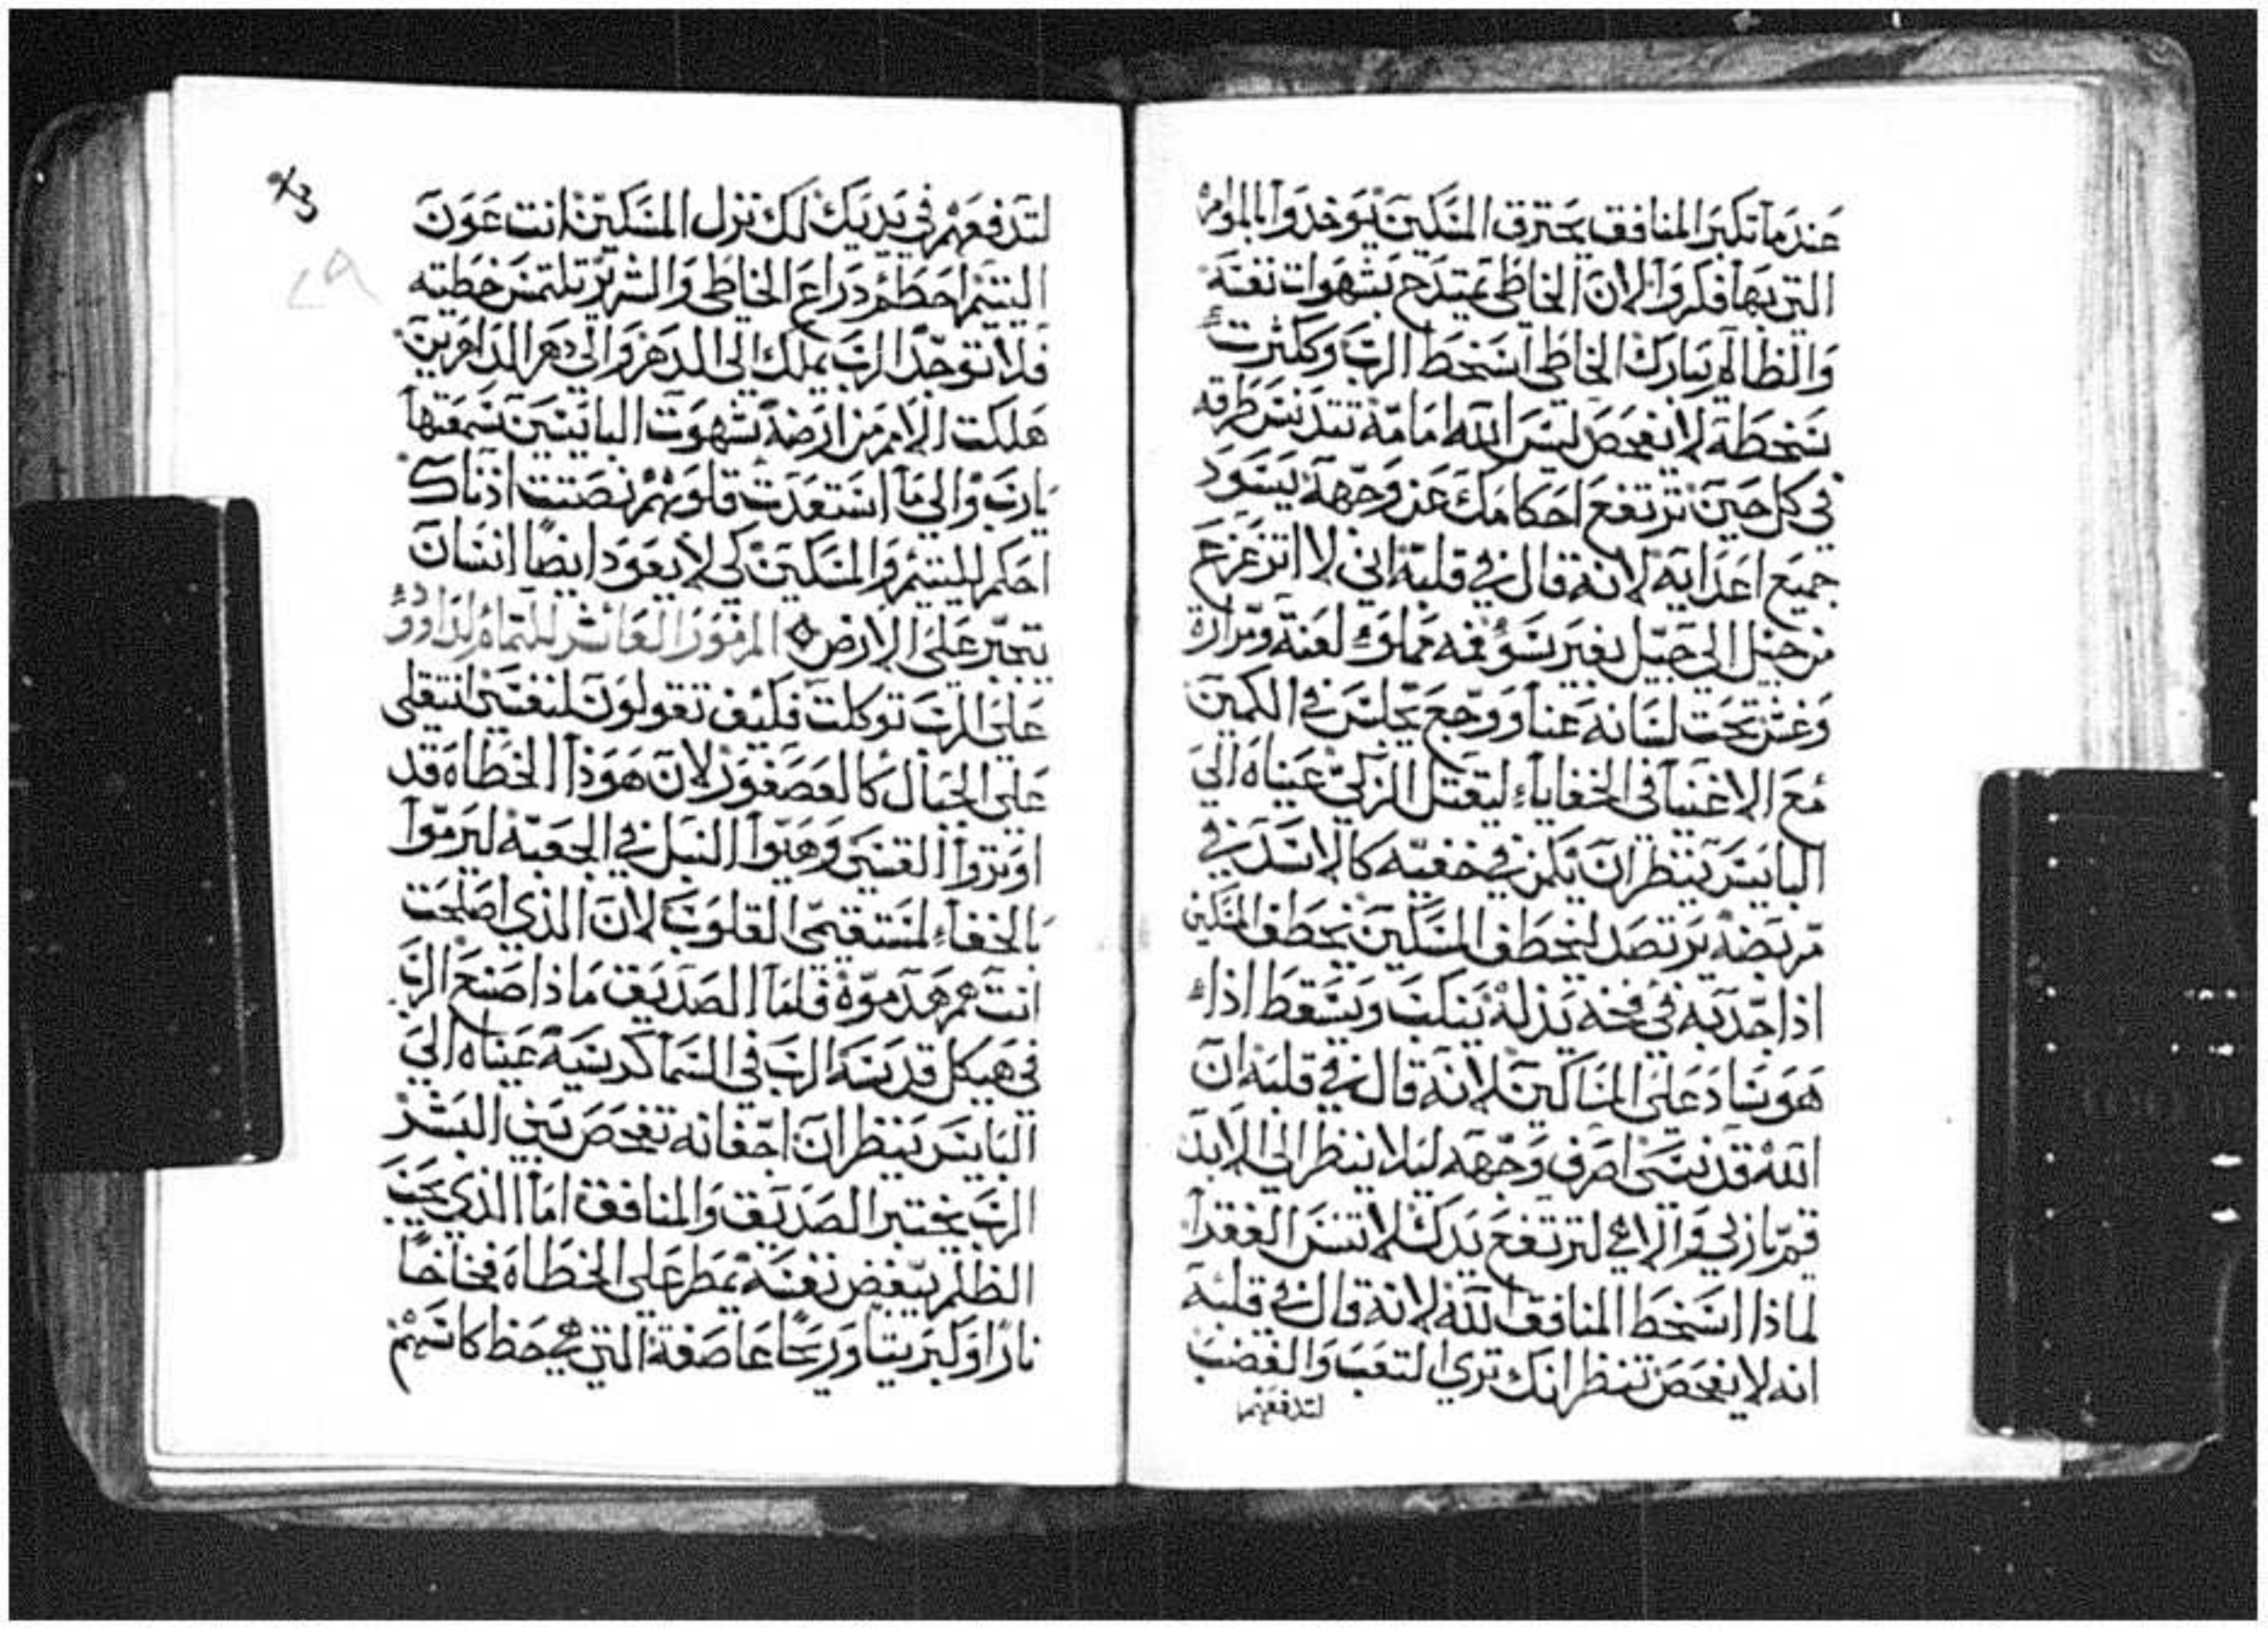 عندما تكبر المنافق يحترق المسكين يوخدوا بالموامر
التي بها فكروا لان الخاطي يمتدح بشهوات نفسه
والظالم يبارك الخاطي اسخط الرب وكثرت
سخطة لا يفحص ليس الله امامه تتدنس طرقه
في كل حين ترتفع احكامك عن وجهه يسود
جميع اعدايه لانه قال في قلبه اني لا اتزعزع
من جيل الي جيل بغير سؤ فمه مملوء لعنه ومرارة
وغش تحت لسانه عنا ووجع يجلس في الكمين
مع الاغنيا في الخفاياء ليقتل الزكي عيناه الي
البايس ينظران يكمن في خفيه كالاسد في
مربضه يرتصد ليخطف المسكين يخطف المسكين
اذا جدبه في فخه يذله ينكب ويسقط اذا
هو ساد علي المساكين لانه قال في قلبه ان
الله قد نسي اصرف وجهه ليلا ينظر الي الابد
قم يا ربي والاهي لترتفع يدك لا تنس الفقرا
لماذا اسخط المنافق الله لانه قال في قلبه
انه لا يفحص تنظر انك تري التعب والغضب
لتدفعهم
لتدفعهم في يديك لك ترك المسكين انت عون
اليتيم احطم دراع الخاطي والشرير تلتمس خطيته
فلا توجد الرب يملك الي الدهر والي دهر الداهرين
هلكت الامم من ارضه شهوت البايسين سمعتها
يا رب والي ما استعدت قلوبهم نصتت اذناك
احكم لليتيم والمسكين كي لا يعود ايضا انسان
يتجبر علي الارض المزمور العاشر للتمام لداوود
علي الرب توكلت فكيف تقولون لنفسي انتقلي
علي الجبال كالعصفور لان هوذا الخطاه قد
اوتروا القسي وهيوا النبل في الجعبه ليرموا
بالخفاء لمستقيمي القلوب لان الذي اصلحت
انت هم هدموه فاما الصديق ماذا صنع الرب
في هيكل قدسه الرب في السما كرسيه عيناه الي
البايس ينظران اجفانه تفحص بني البشر
الرب يختبر الصديق والمنافق اما الذي يحب
الظلم يبغض نفسه يمطر علي الخطاه فخاخا
نارا وكبريتا وريحا عاصفة التي هي حظ كاسهم